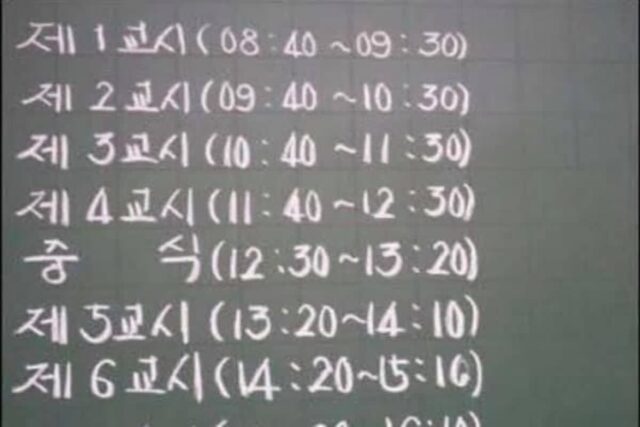 제 1 교시 (08:40 ~09:30)
제 2 교시 (09:40 ~10:30)
제 3 교시 (10:40 ~11:30)
제 4 교시 (11:40 ~12:30)
중 식 (12:30~13:20)
제 5 교시 (13:20~14:10)
제 6 교시 (14:20~15:10)